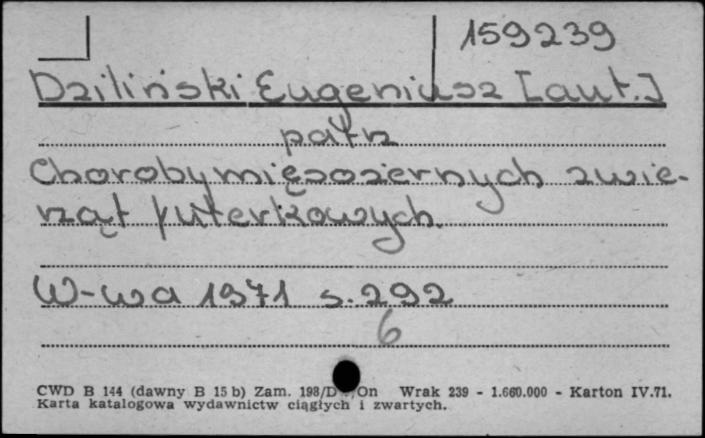 159239
Dziliński Eugeniusz [aut.]
patrz
Choroby mięsożernych zwie-
rząt futerkowych.
W-wa 1971 s. 292
6
CWD B 144 (dawny B 15 b) Zam. 198/D /On Wrak 239 - 1.660.000 - Karton IV.71.
Karta katalogowa wydawnictw ciągłych i zwartych.